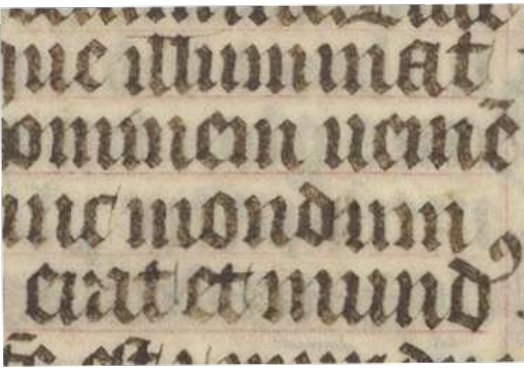 que illuminat
ominem ueniē
unc mondum
erat et mundꝰ